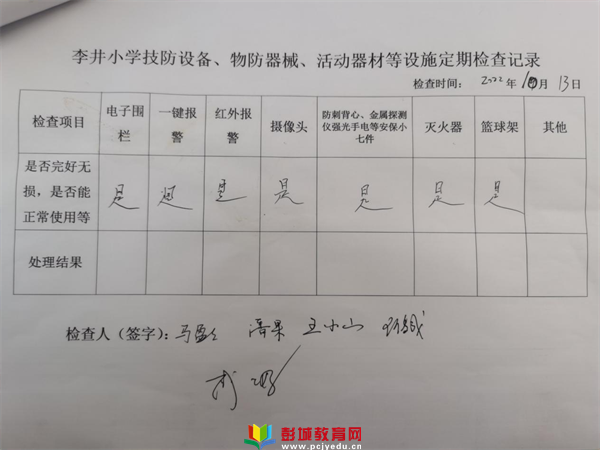 李井小学技防设备、物防器械、活动器材等设施定期检查记录
检查时间： 2022 年 10 月 13 日
检查项目 电子围栏 一键报警 红外报警 摄像头 防刺背心、金属探测仪强光手电等安保小七件 灭火器 篮球架 其他
是否完好无损，是否能正常使用等 是 是 是 是 是 是 是
处理结果
检查人（签字）： 王小山
彭城教育网
www.pcjyedu.cn